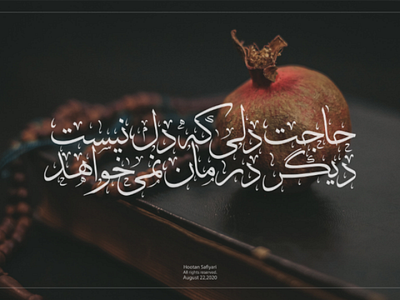 حاجت دلی که دل نیست
دیگر درمان نمی‌خواهد
Hootan Safiyari
All rights reserved.
August 22,2020